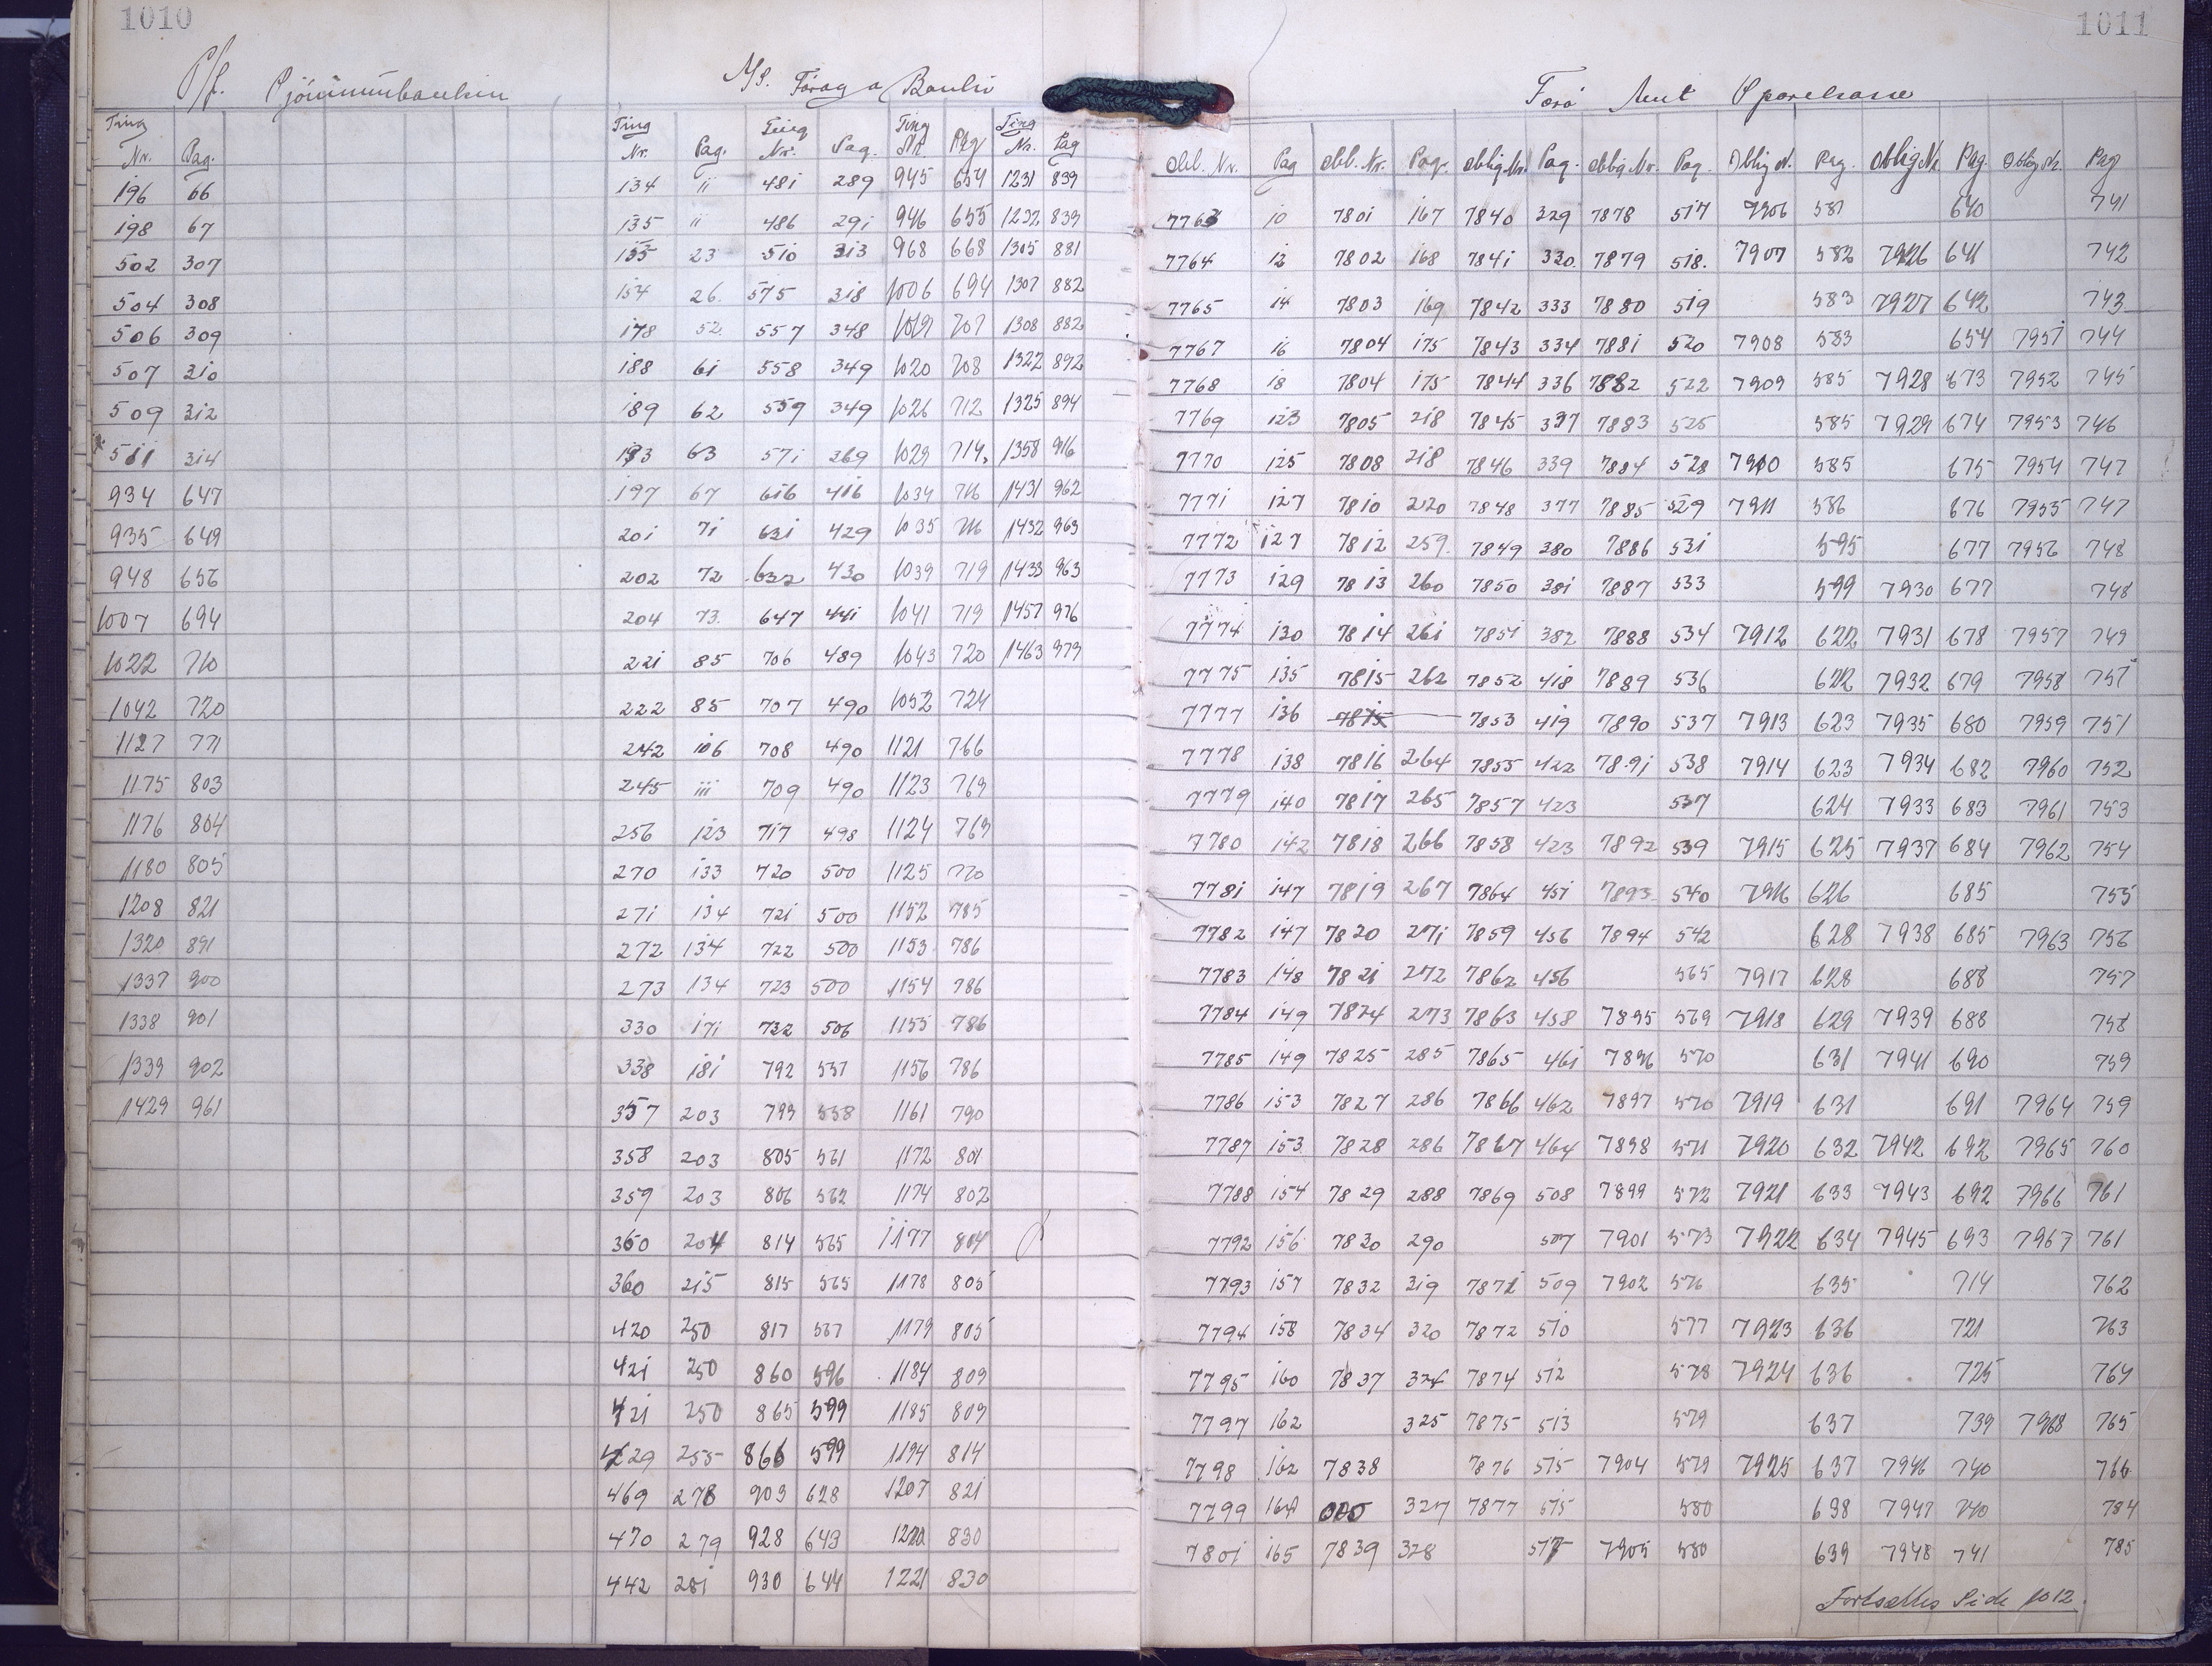 1010
1011
P/f. Sjóvinnubankin
A/S. Föroya Banki
Færø Amt Sparekasse
Ting Nr. Pag. Ting Nr. Pag. Ting Nr. Pag. Ting Nr. Pag Ting Nr. Pag
Obl. Nr. Pag Obl. Nr. Pag. Oblig Nr. Pag. Oblig Nr. Pag. Oblig N. Pag. Oblig Nr. Pag. Oblig Nr. Pag
196 66
198 67
502 307
504 308
506 309
507 310
509 312
511 314
934 647
935 649
948 656
1007 694
1022 710
1042 720
1127 771
1175 803
1176 804
1180 805
1208 821
1320 891
1337 900
1338 901
1339 902
1429 961
134 11 481 289 945 654 1231 839
135 11 486 291 946 655 1232 839
155 23 510 313 968 668 1305 881
154 26 575 318 1006 694 1307 882
178 52 557 348 1019 707 1308 882
188 61 558 349 1020 708 1322 892
189 62 559 349 1026 712 1325 894
193 63 571 369 1029 714 1358 916
197 67 616 416 1034 716 1431 962
201 71 631 429 1035 716 1432 963
202 72 632 430 1039 719 1433 963
204 73 647 441 1041 719 1457 976
221 85 706 489 1043 720 1463 979
222 85 707 490 1052 724
242 106 708 490 1121 766
245 111 709 490 1123 769
256 123 717 498 1124 769
270 133 720 500 1125 770
271 134 721 500 1152 785
272 134 722 500 1153 786
273 134 723 500 1154 786
330 171 732 506 1155 786
338 181 792 557 1156 786
357 203 799 558 1161 790
358 203 805 561 1172 801
359 203 806 562 1174 802
360 204 814 565 1177 804
360 215 815 565 1178 805
420 250 817 567 1179 805
421 250 860 596 1184 809
421 250 865 599 1185 809
429 255 866 599 1194 814
469 278 903 628 1207 821
470 279 928 643 1220 830
442 281 930 644 1221 830
7763 10 7801 167 7840 329 7878 517 7906 581 640 741
7764 12 7802 168 7841 330. 7879 518. 7907 582 7926 641 742
7765 14 7803 169 7842 333 7880 519 583 7927 642 743
7767 16 7804 175 7843 334 7881 520 7908 583 654 7951 744
7768 18 7804 175 7844 336 7882 522 7909 585 7928 673 7952 745
7769 123 7805 218 7845 337 7883 525 585 7929 674 7953 746
7770 125 7808 218 7846 339 7884 528 7910 585 675 7954 747
7771 127 7810 220 7848 377 7885 529 7911 586 676 7955 747
7772 127 7812 259 7849 380 7886 531 595 677 7956 748
7773 129 7813 260 7850 381 7887 533 599 7930 677 748
7774 130 7814 261 7851 382 7888 534 7912 622 7931 678 7957 749
7775 135 7815 262 7852 418 7889 536 622 7932 679 7958 751
7777 136 7815 7853 419 7890 537 7913 623 7935 680 7959 751
7778 138 7816 264 7855 422 7891 538 7914 623 7934 682 7960 752
7779 140 7817 265 7857 423 537 624 7933 683 7961 753
7780 142 7818 266 7858 423 7892 539 7915 625 7937 684 7962 754
7781 147 7819 267 7864 451 7893 540 7916 626 685 755
7782 147 7820 271 7859 456 7894 542 628 7938 685 7963 756
7783 148 7821 272 7862 456 565 7917 628 688 757
7784 149 7824 273 7863 458 7895 569 7918 629 7939 688 758
7785 149 7825 285 7865 461 7896 570 631 7941 690 759
7786 153 7827 286 7866 462 7897 570 7919 631 691 7964 759
7787 153 7828 286 7867 464 7898 571 7920 632 7942 692 7965 760
7788 154 7829 288 7869 508 7899 572 7921 633 7943 692 7966 761
7792 156 7830 290 507 7901 573 7922 634 7945 693 7967 761
7793 157 7832 319 7871 509 7902 576 635 714 762
7794 158 7834 320 7872 510 577 7923 636 721 763
7795 160 7837 324 7874 512 578 7924 636 725 764
7797 162 325 7875 513 579 637 739 7968 765
7798 162 7838 7876 515 7904 579 7925 637 7946 740 766
7799 164 327 7877 515 580 638 7947 740 784
7801 165 7839 328 517 7905 580 639 7948 741 785
Fortsættes Side 1012.